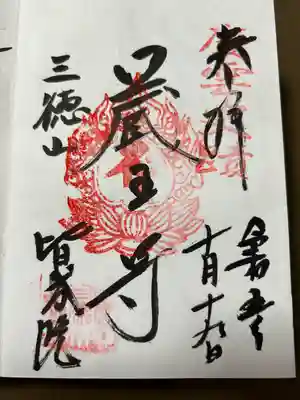 奉拝
令和五年
十月十九日
蔵王尊
三徳山
皆成院